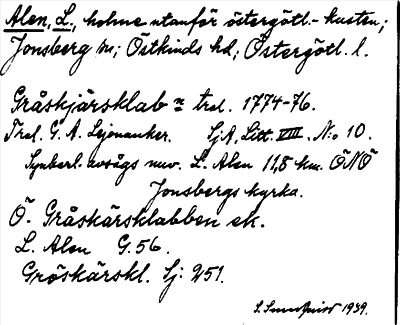 Alen, L., holme utanför östergötl.-kusten;
Jonsberg sn; Östkinds hd; Östergötl. l.
Gråskjärsklab trol. 1774-76.
Trol. G. A. Lejonanker. SjA, Litt. VIII. No 10.
Synberl. avsågs nuv. L. Alen 11,8 km. ÖNÖ
Jonsbergs kyrka.
Ö. Gråskärsklabben ek.
L. Alen G. 56.
Gröskärskl. Sj: 251.
1939.